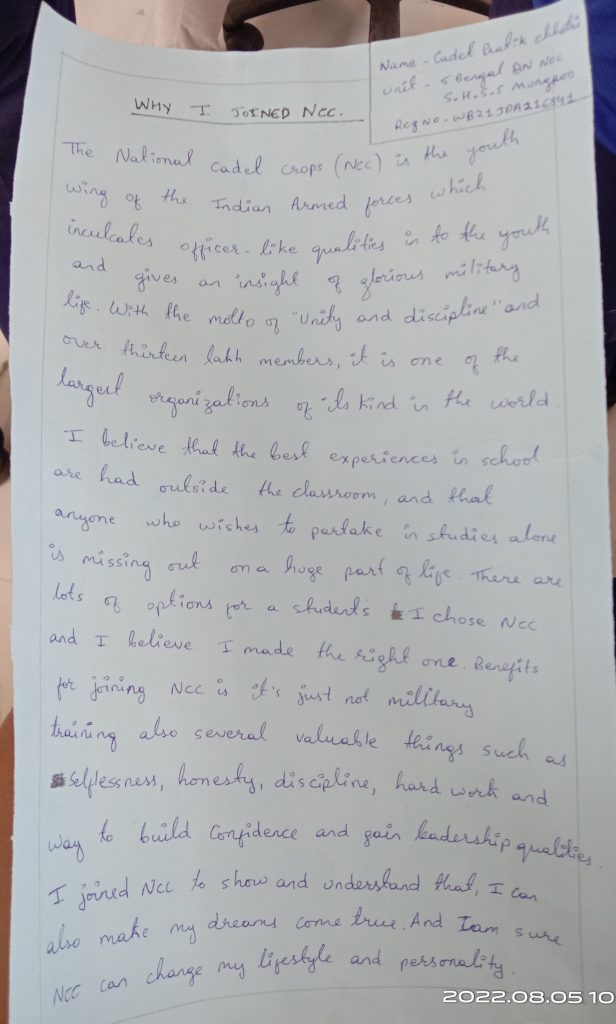 Name - Cadet Pratik chhetri
Unit - 5 Bengal BN NCC
S.H.S.S Mungpoo
Reg No - WB21JDA216841
WHY I JOINED NCC.
The National Cadel crops (NCC) is the youth
wing of the Indian Armed forces which
inculcates officer-like qualities in to the youth
and gives an insight of glorious military
life. With the motto of "Unity and discipline" and
over thirteen lakh members, it is one of the
largest organizations of its kind in the world.
I believe that the best experiences in school
are had outside the classroom, and that
anyone who wishes to partake in studies alone
is missing out on a huge part of life. There are
lots of options for a students I chose NCC
and I believe I made the right one. Benefits
for joining NCC is it's just not military
training also several valuable things such as
Selflessness, honesty, discipline, hard work and
way to build Confidence and gain leadership qualities.
I joined NCC to show and understand that, I can
also make my dreams come true. And I am sure
NCC can change my lifestyle and personality.
2022.08.05 10